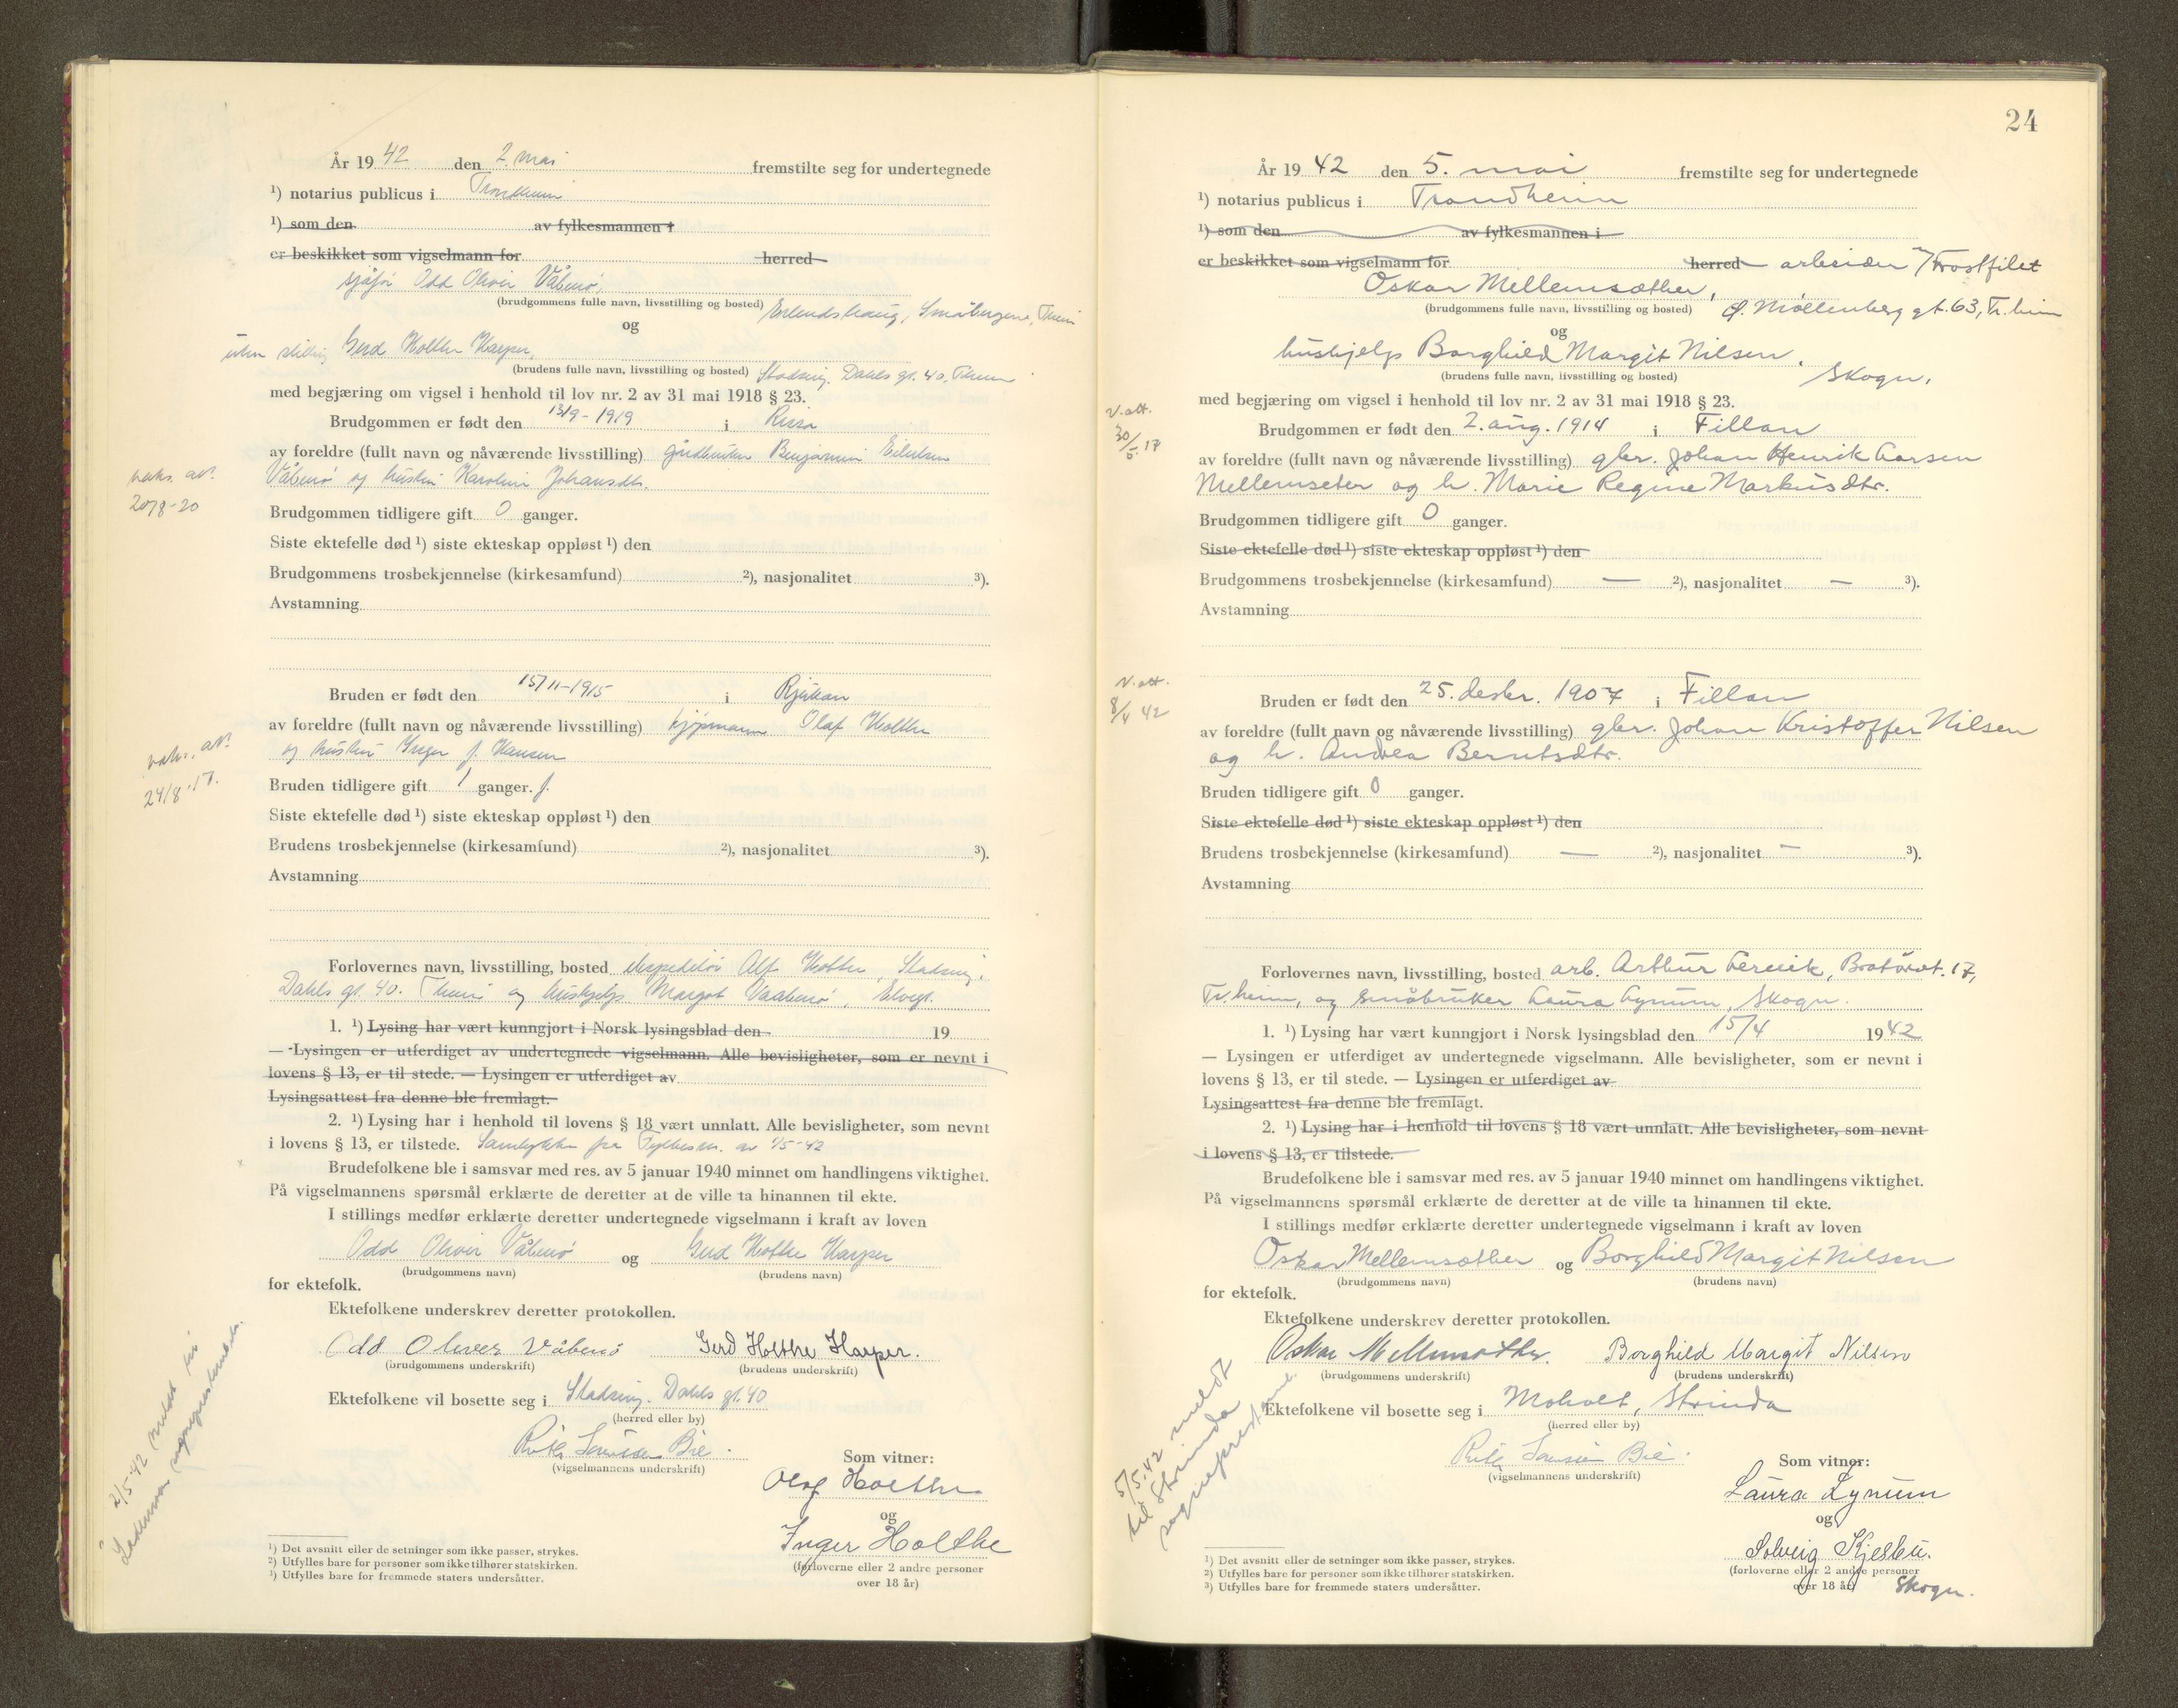 År 1942 den 2. mai fremstilte seg for undertegnede
¹) notarius publicus i Trondheim
¹) som den av fylkesmannen i
er beskikket som vigselmann for herred
sjåfør Odd Oliver Våbenø,
(brudgommens fulle navn, livsstilling og bosted) Erlendshaug, Småbergene, Theim
og
uten stilling Gerd Holthe Harper,
(brudens fulle navn, livsstilling og bosted) Stadsing. Dahls gt. 40, Theim
med begjæring om vigsel i henhold til lov nr. 2 av 31 mai 1918 § 23.
Brudgommen er født den 13/9 - 1919 i Rissa
av foreldre (fullt navn og nåværende livsstilling) gårdbruker Benjamin Eilertsen
Våbenø og hustru Karoline Johansdtr.
vaks. att.
20/8-20
Brudgommen tidligere gift 0 ganger.
Siste ektefelle død ¹) siste ekteskap oppløst ¹) den
Brudgommens trosbekjennelse (kirkesamfund) ²), nasjonalitet ³).
Avstamning
Bruden er født den 15/11-1915 i Rjukan
av foreldre (fullt navn og nåværende livsstilling) kjøpmann Olaf Holthe
og hustru Inger f. Hansen
vaks. att.
24/8-17.
Bruden tidligere gift 1 ganger. f.
Siste ektefelle død ¹) siste ekteskap oppløst ¹) den
Brudens trosbekjennelse (kirkesamfund) ²), nasjonalitet ³).
Avstamning
Forlovernes navn, livsstilling, bosted ekspeditør Alf Holthe, Stadsing.
Dahls gt. 40. Theim og hushjelp Margot Vaabenø, Elvegt.
1. ¹) Lysing har vært kunngjort i Norsk lysingsblad den 19
— Lysingen er utferdiget av undertegnede vigselmann. Alle bevisligheter, som er nevnt i
lovens § 13, er til stede. — Lysingen er utferdiget av
Lysingsattest fra denne ble fremlagt.
2. ¹) Lysing har i henhold til lovens § 18 vært unnlatt. Alle bevisligheter, som nevnt
i lovens § 13, er tilstede. Samtykke fra Fylkesm. av 1/5-42
Brudefolkene ble i samsvar med res. av 5 januar 1940 minnet om handlingens viktighet.
På vigselmannens spørsmål erklærte de deretter at de ville ta hinannen til ekte.
I stillings medfør erklærte deretter undertegnede vigselmann i kraft av loven
Odd Oliver Våbenø og Gerd Holthe Harper
(brudgommens navn) (brudens navn)
for ektefolk.
Ektefolkene underskrev deretter protokollen.
Odd Oliver Våbenø Gerd Holthe Harper.
(brudgommens underskrift) (brudens underskrift)
Ektefolkene vil bosette seg i Stadsing. Dahls gt. 40
(herred eller by)
(vigselmannens underskrift)
Som vitner:
Olaf Holthe
og
Inger Holthe
(forloverne eller 2 andre personer
over 18 år)
2/5-42 meldt til
Lademoen sogneprestembede.
¹) Det avsnitt eller de setninger som ikke passer, strykes.
²) Utfylles bare for personer som ikke tilhører statskirken.
³) Utfylles bare for fremmede staters undersåtter.
24
År 1942 den 5. mai fremstilte seg for undertegnede
¹) notarius publicus i Trondheim
¹) som den av fylkesmannen i
er beskikket som vigselmann for herred arbeider v/Frostfilet
Oskar Mellemsæther,
(brudgommens fulle navn, livsstilling og bosted) Ø. Møllenberg gt. 63, Tr.heim
og
hushjelp Borghild Margit Nilsen,
(brudens fulle navn, livsstilling og bosted) Skogn.
med begjæring om vigsel i henhold til lov nr. 2 av 31 mai 1918 § 23.
V. att.
30/5 17
Brudgommen er født den 2. aug. 1914 i Fillan
av foreldre (fullt navn og nåværende livsstilling) gbr. Johan Henrik Larsen
Mellemseter og h. Marie Regine Markusdtr.
Brudgommen tidligere gift 0 ganger.
Siste ektefelle død ¹) siste ekteskap oppløst ¹) den
Brudgommens trosbekjennelse (kirkesamfund) — ²), nasjonalitet — ³).
Avstamning
V. att.
8/4 42
Bruden er født den 25. desbr. 1907 i Fillan
av foreldre (fullt navn og nåværende livsstilling) gbr. Johan Kristoffer Nilsen
og h. Andrea Berntsdtr.
Bruden tidligere gift 0 ganger.
Siste ektefelle død ¹) siste ekteskap oppløst ¹) den
Brudens trosbekjennelse (kirkesamfund) — ²), nasjonalitet — ³).
Avstamning
Forlovernes navn, livsstilling, bosted arb. Arthur Lervik, 17,
Tr.heim, og småbruker Laura Lynum, Skogn.
1. ¹) Lysing har vært kunngjort i Norsk lysingsblad den 15/4 1942
— Lysingen er utferdiget av undertegnede vigselmann. Alle bevisligheter, som er nevnt i
lovens § 13, er til stede. — Lysingen er utferdiget av
Lysingsattest fra denne ble fremlagt.
2. ¹) Lysing har i henhold til lovens § 18 vært unnlatt. Alle bevisligheter, som nevnt
i lovens § 13, er tilstede.
Brudefolkene ble i samsvar med res. av 5 januar 1940 minnet om handlingens viktighet.
På vigselmannens spørsmål erklærte de deretter at de ville ta hinannen til ekte.
I stillings medfør erklærte deretter undertegnede vigselmann i kraft av loven
Oskar Mellemsæther og Borghild Margit Nilsen
(brudgommens navn) (brudens navn)
for ektefolk.
Ektefolkene underskrev deretter protokollen.
Oskar Mellemsæther. Borghild Margit Nilsen
(brudgommens underskrift) (brudens underskrift)
Ektefolkene vil bosette seg i Moholt, Strinda
(herred eller by)
(vigselmannens underskrift)
Som vitner:
Laura Lynum
og
Solveig Kjesbu.
(forloverne eller 2 andre personer
over 18 år) Skogn.
5/5-42 meldt
til Strinda
sogneprestemb.
¹) Det avsnitt eller de setninger som ikke passer, strykes.
²) Utfylles bare for personer som ikke tilhører statskirken.
³) Utfylles bare for fremmede staters undersåtter.